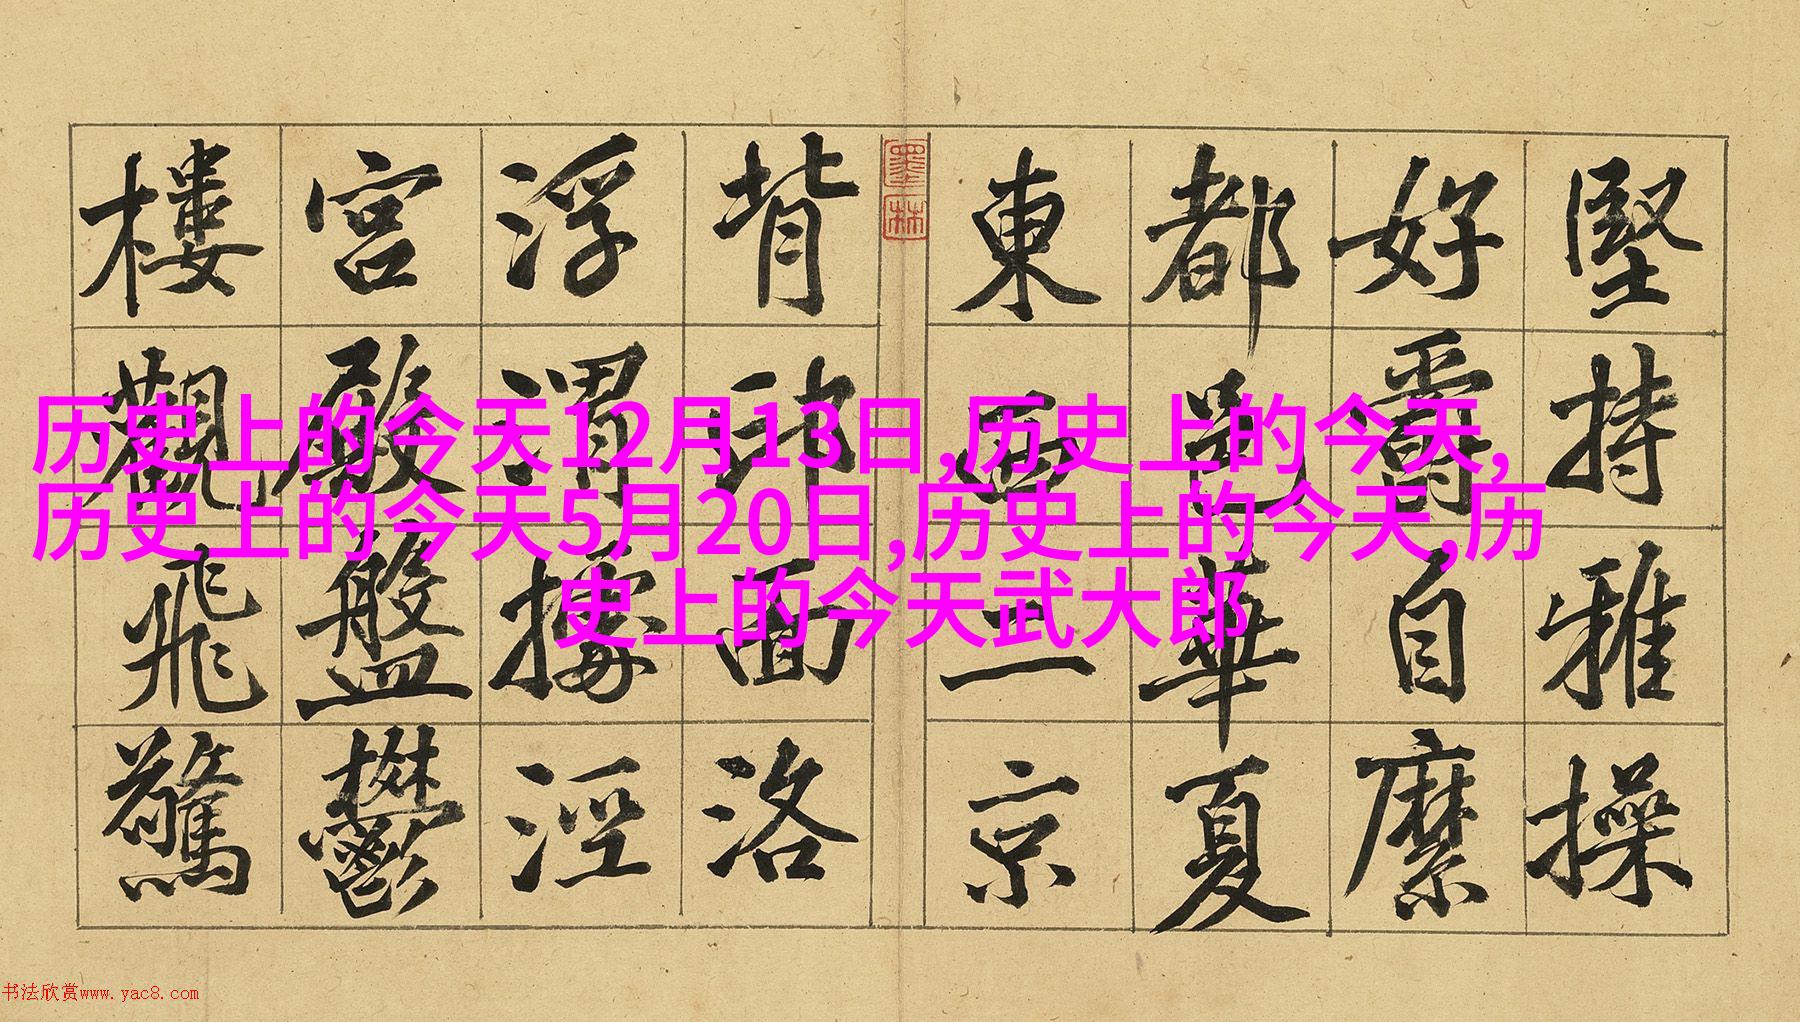 堅持雅操
好爵自縻
都邑華夏
東西二京
墨林
背邙面洛
浮渭據涇
宮殿盤鬱
樓觀飛驚
历史上的今天12月13日,历史上的今天,
历史上的今天5月20日,历史上的今天,历
史上的今天武大郎
书法欣赏www.yac8.com